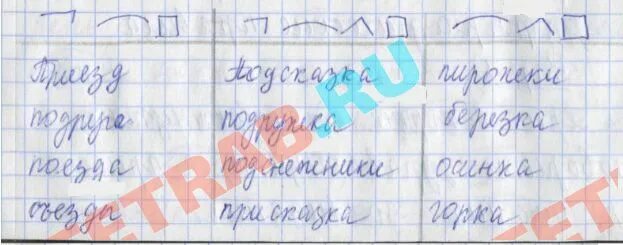 Приезд Подсказка пирожски
подруга подружка березка
поезда подснежники осинка
съезды присказка горка
TETRAB.RU